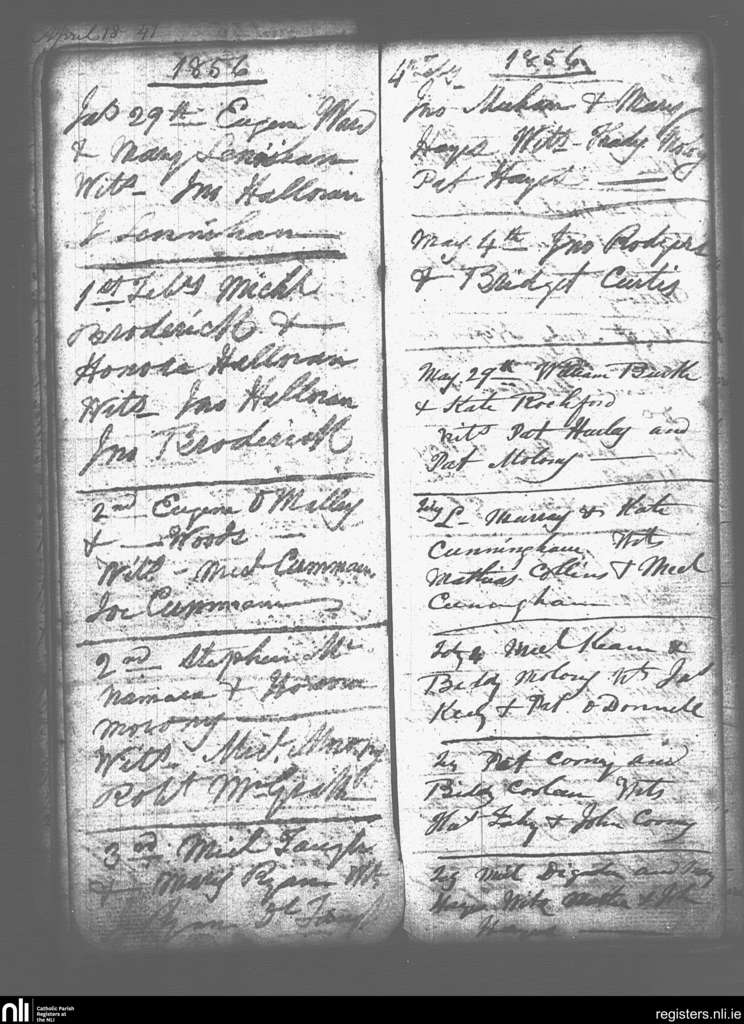 April 18 41
1856
Jab 29th Eugene Ward
& Mary Lennihan
Wits Jno Halloran
J Lennihan
1st Feby Michl
Broderick &
Honora Halloran
Wits Jno Halloran
Jno Broderick
2nd Eugene O Malley
& Woods
Wits Micl Cunmam
Joe Cunmam
2nd Stephen Mc
Namara & Honora
Morony
Wits Micl
Robt McGrath
3rd Micl
& Mary Ryan Wts
Ryan
1856
4th Feby
Jno Meehan & Mary
Hayes Wits
Pat Hayes
May 4th Jno Rodgers
& Bridget Curtis
May 29th William Burke
& Kate Rochford
Wits Pat Hurley and
Pat Molony
L Murray & Kate
Cunningham Wits
Mathias Collins & Micl
Cunongham
Micl Keane &
Biddy Molony Wts Jas
& Pat O Donnell
Pat Coony and
Biddy Wits
Fahy & John Coony
Micl and
Wits & John
Hayes
nli
Catholic Parish
Registers at
the NLI
registers.nli.ie